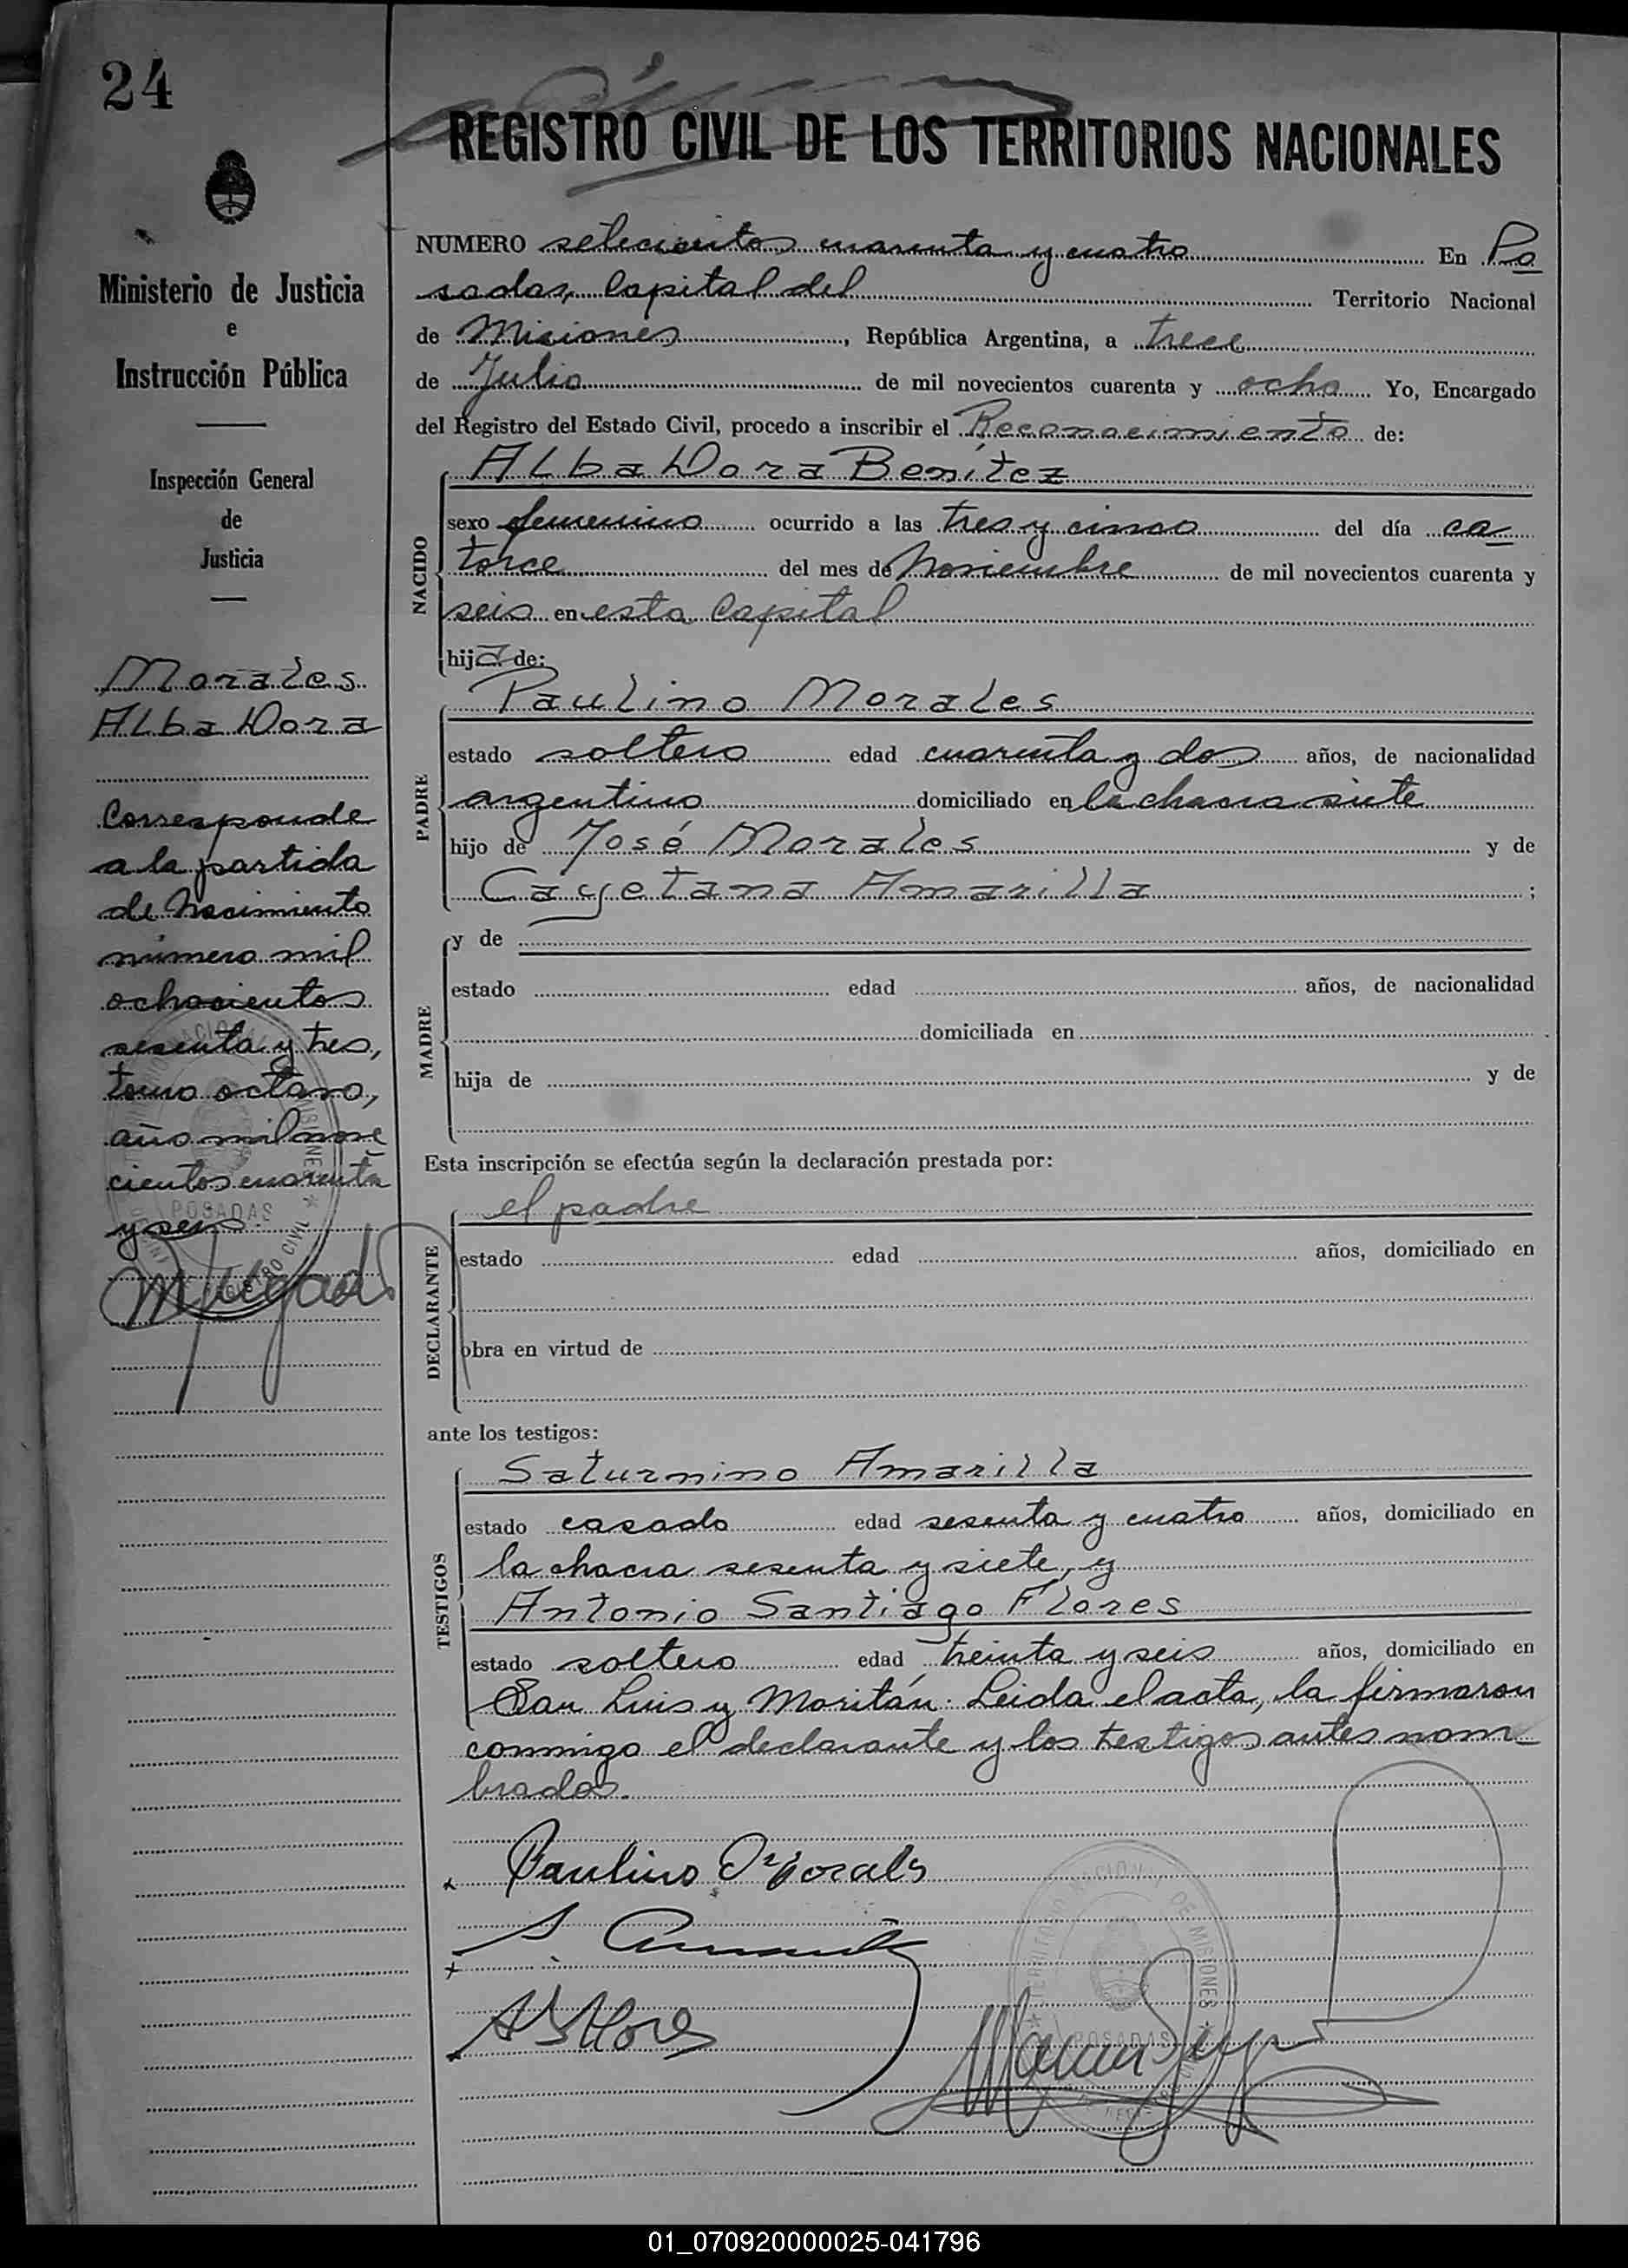 24
REGISTRO CIVIL DE LOS TERRITORIOS NACIONALES
Ministerio de Justicia
e
Instrucción Pública
Inspección General
de
Justicia
Morales
Alba Dora
Corresponde
a la partida
de Nacimiento
número mil
ochocientos
sesenta y tres,
tomo octavo,
año mil nove
cientos cuarenta
y seis.
NUMERO setecientos cuarenta y cuatro En Po
sadas, Capital del Territorio Nacional
de Misiones, República Argentina, a trece
de Julio de mil novecientos cuarenta y ocho Yo, Encargado
del Registro del Estado Civil, procedo a inscribir el Reconocimiento de:
NACIDO
Alba Dora Benítez
sexo femenino ocurrido a las tres y cinco del día ca
torce del mes de Noviembre de mil novecientos cuarenta y
seis en esta Capital
hija de:
PADRE
Paulino Morales
estado soltero edad cuarenta y dos años, de nacionalidad
argentino domiciliado en la chacra siete
hijo de José Morales y de
Cayetana Amarilla ;
MADRE
y de
estado edad años, de nacionalidad
domiciliada en
hija de y de
Esta inscripción se efectúa según la declaración prestada por:
DECLARANTE
el padre
estado edad años, domiciliado en
obra en virtud de
ante los testigos:
TESTIGOS
Saturnino Amarilla
estado casado edad sesenta y cuatro años, domiciliado en
la chacra sesenta y siete, y
Antonio Santiago Flores
estado soltero edad treinta y seis años, domiciliado en
San Luis y Moritán. Leida el acta, la firmaron
conmigo el declarante y los testigos antes nom-
brados.
Paulino Morales
A S Flores
POSADAS
01_070920000025-041796